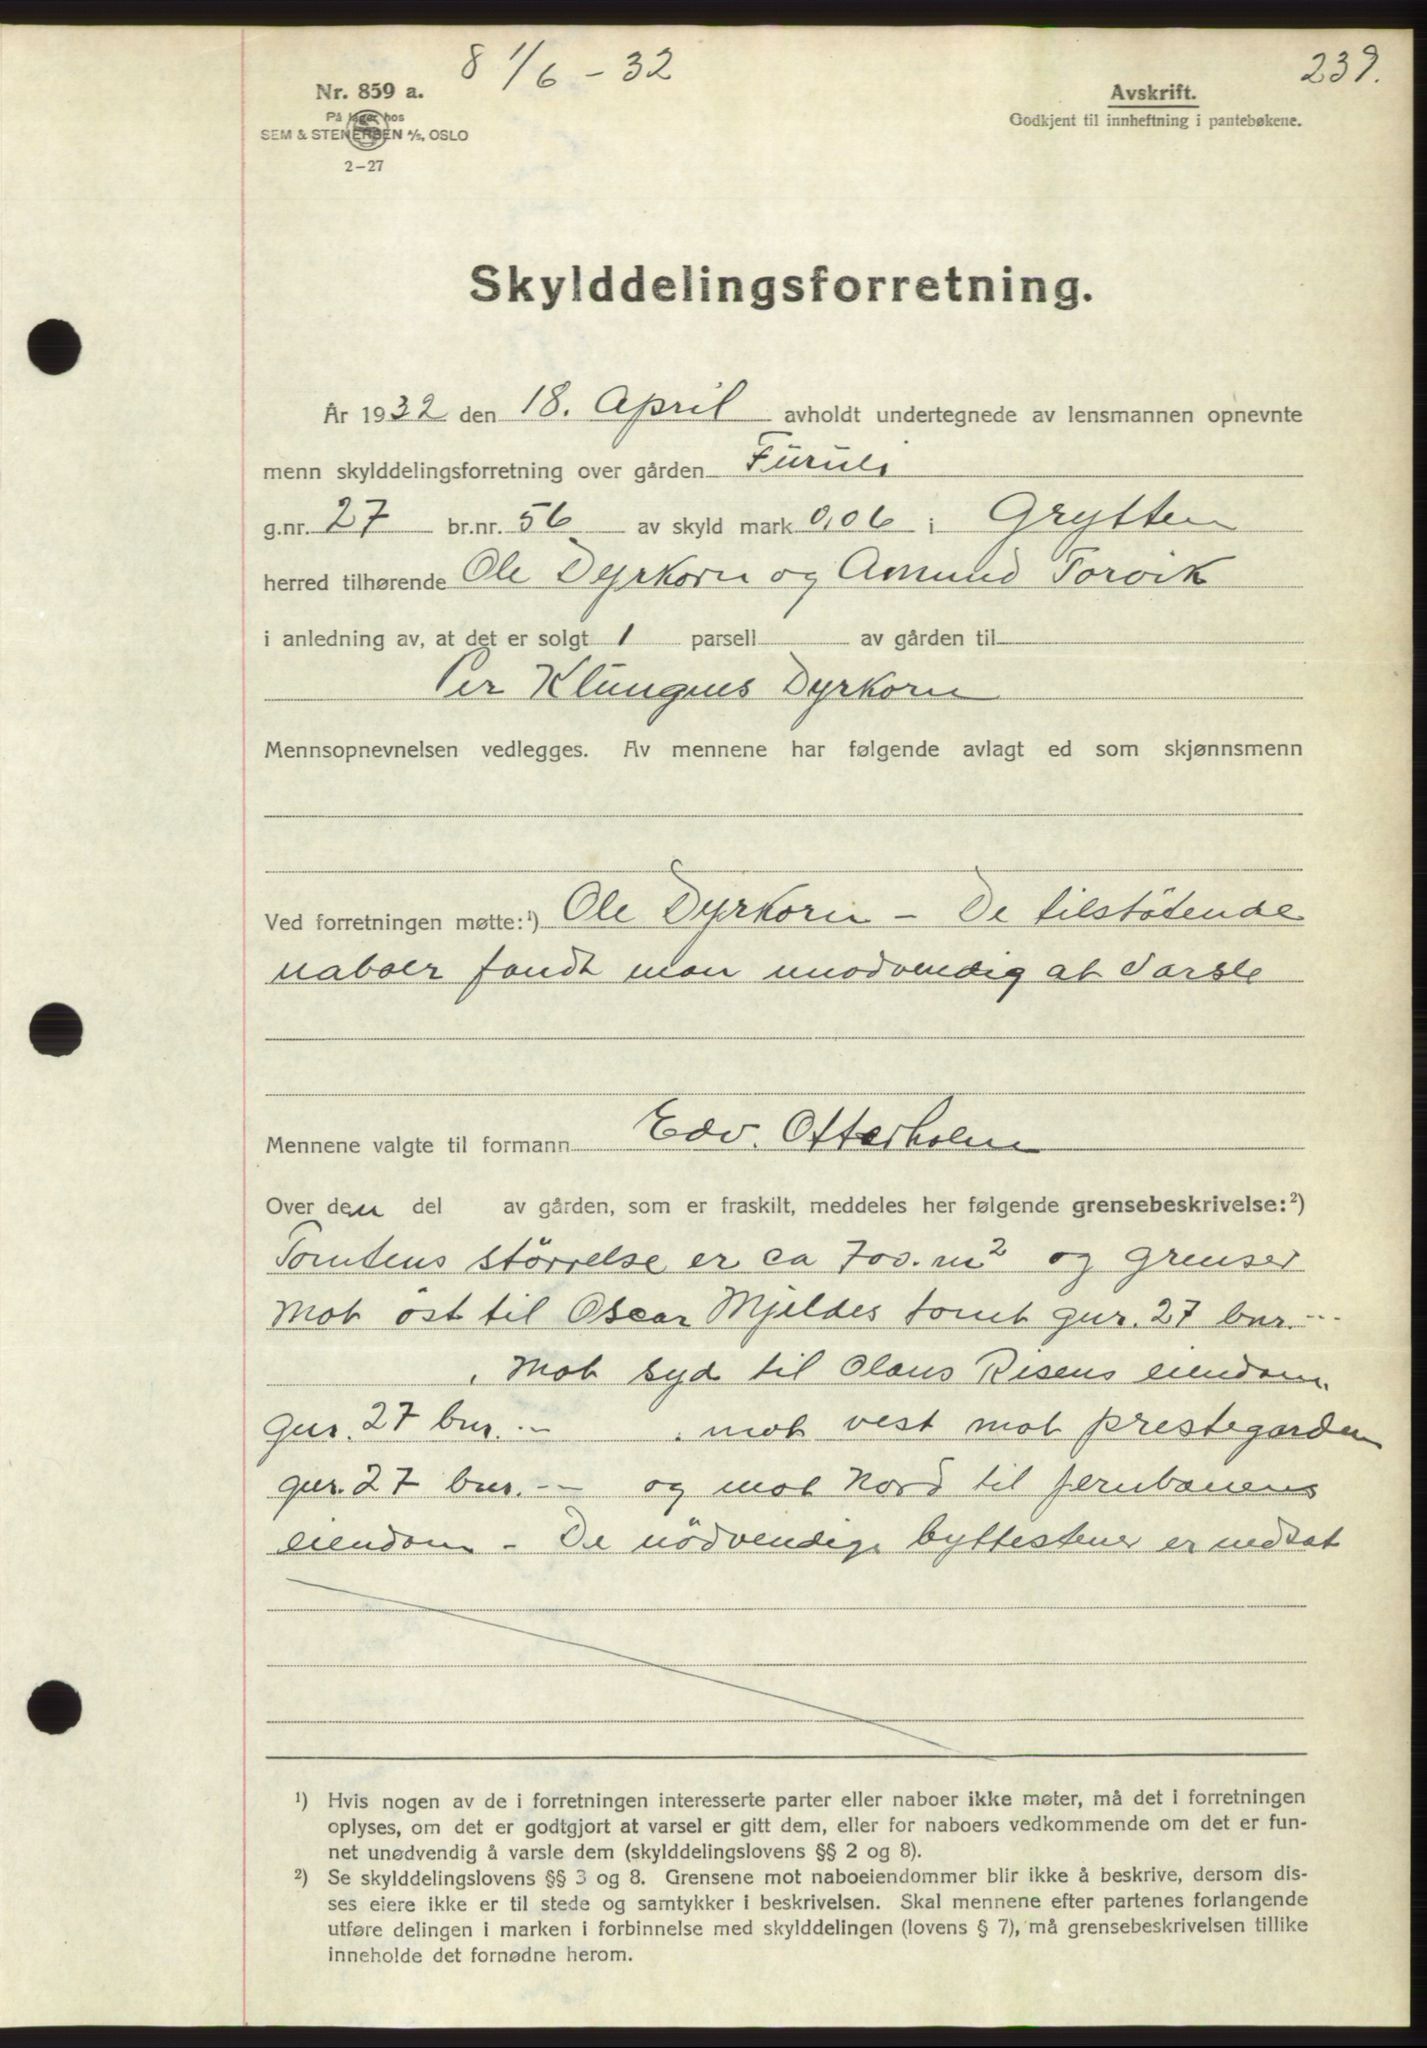 8 1/6 - 32
239.
Nr. 859 a.
På lager hos
SEM & STENERSEN A/S, OSLO
2-27
Avskrift.
Godkjent til innheftning i pantebøkene.
Skylddelingsforretning.
År 1932 den 18. April avholdt undertegnede av lensmannen opnevnte
menn skylddelingsforretning over gården Furuli
g.nr. 27 br.nr. 56 av skyld mark 0,06 i Grytten
herred tilhørende Ole Dyrkorn og Amund Torvik
i anledning av, at det er solgt 1 parsell av gården til
Per Klungnes Dyrkorn
Mennsopnevnelsen vedlegges. Av mennene har følgende avlagt ed som skjønnsmenn
Ved forretningen møtte:¹) Ole Dyrkorn - De tilstötende
naboer fandt man unodvendig at varsle
Mennene valgte til formann Edv. Otterholm
Over den del av gården, som er fraskilt, meddeles her følgende grensebeskrivelse:²)
Tomtens störrelse er ca 700. m² og grenser
mot öst til Oscar Mjeldes tomt gnr. 27 bnr. ---
, mot syd til Olaus Risens eiendom,
gnr. 27 bnr. -- , mot vest mot prestegarden
gnr. 27 bnr. -- og mot Nord til jernbanens
eiendom - De nödvendige byttestener er nedsat
¹) Hvis nogen av de i forretningen interesserte parter eller naboer ikke møter, må det i forretningen
oplyses, om det er godtgjort at varsel er gitt dem, eller for naboers vedkommende om det er fun-
net unødvendig å varsle dem (skylddelingslovens §§ 2 og 8).
²) Se skylddelingslovens §§ 3 og 8. Grensene mot naboeiendommer blir ikke å beskrive, dersom dis-
ses eiere ikke er til stede og samtykker i beskrivelsen. Skal mennene efter partenes forlangende
utføre delingen i marken i forbinnelse med skylddelingen (lovens § 7), må grensebeskrivelsen tillike
inneholde det fornødne herom.